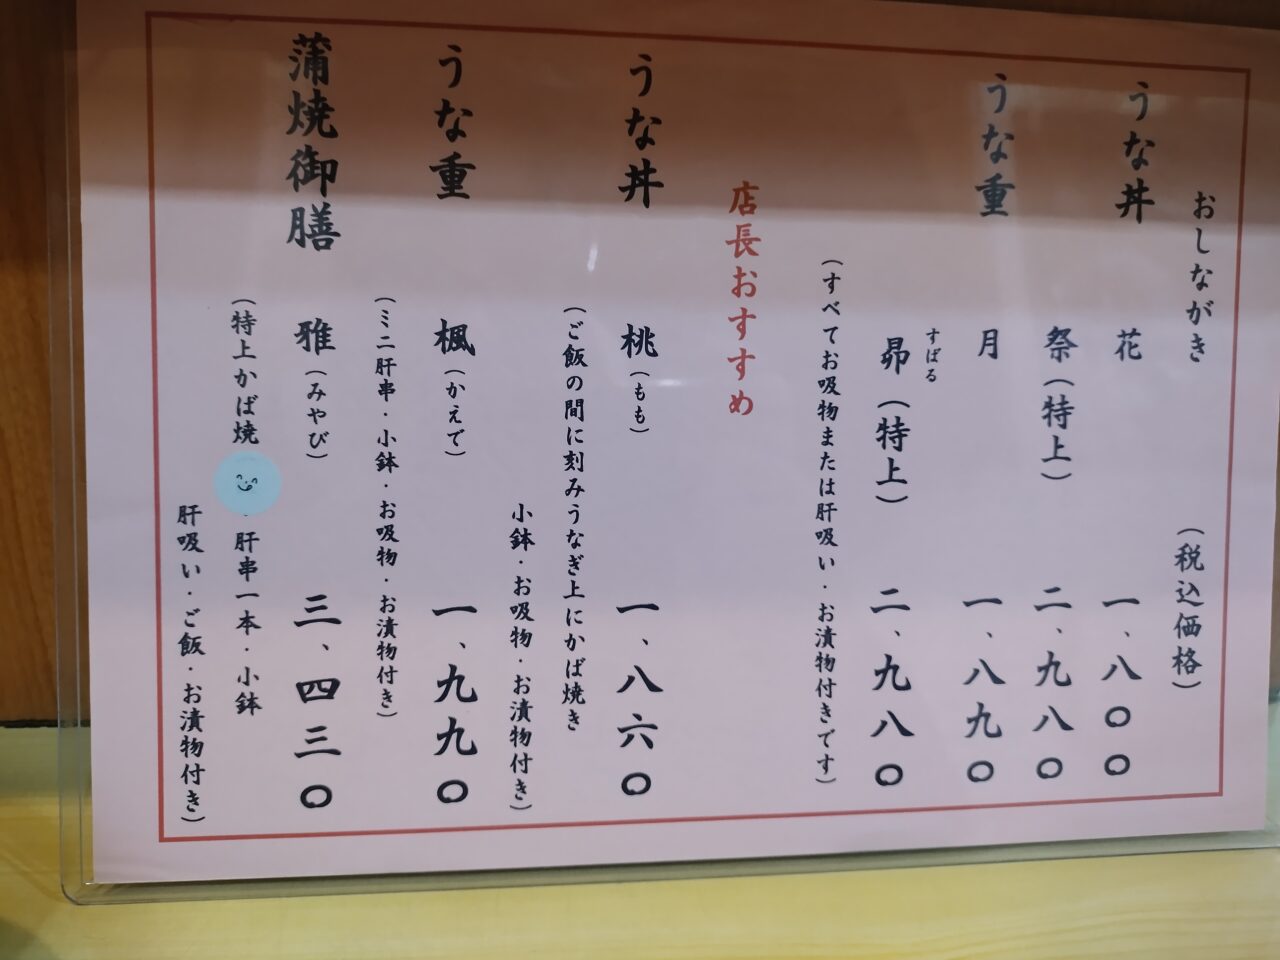 おしながき （税込価格）
うな丼 花 一、八〇〇
祭（特上） 二、九八〇
うな重 月 一、八九〇
すばる
昴（特上） 二、九八〇
（すべてお吸物または肝吸い・お漬物付きです）
店長おすすめ
うな丼 桃（もも） 一、八六〇
（ご飯の間に刻みうなぎ上にかば焼き
小鉢・お吸物・お漬物付き）
うな重 楓（かえで） 一、九九〇
（ミニ肝串・小鉢・お吸物・お漬物付き）
蒲焼御膳 雅（みやび） 三、四三〇
（特上かば焼 ・肝串一本・小鉢
肝吸い・ご飯・お漬物付き）